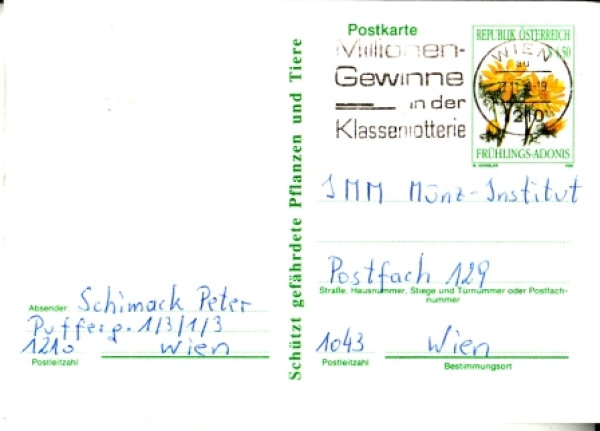 Postkarte
REPUBLIK ÖSTERREICH
Millionen-
Gewinne
in der
Klassenlotterie
WIEN
1210
FRÜHLINGS-ADONIS
Schützt gefährdete Pflanzen und Tiere
IMM Münz-Institut
Postfach 129
Straße, Hausnummer, Stiege und Türnummer oder Postfach-
nummer
1043 Wien
Postleitzahl Bestimmungsort
Absender Schimack Peter
Pufferg. 1/3/1/3
1210 Wien
Postleitzahl